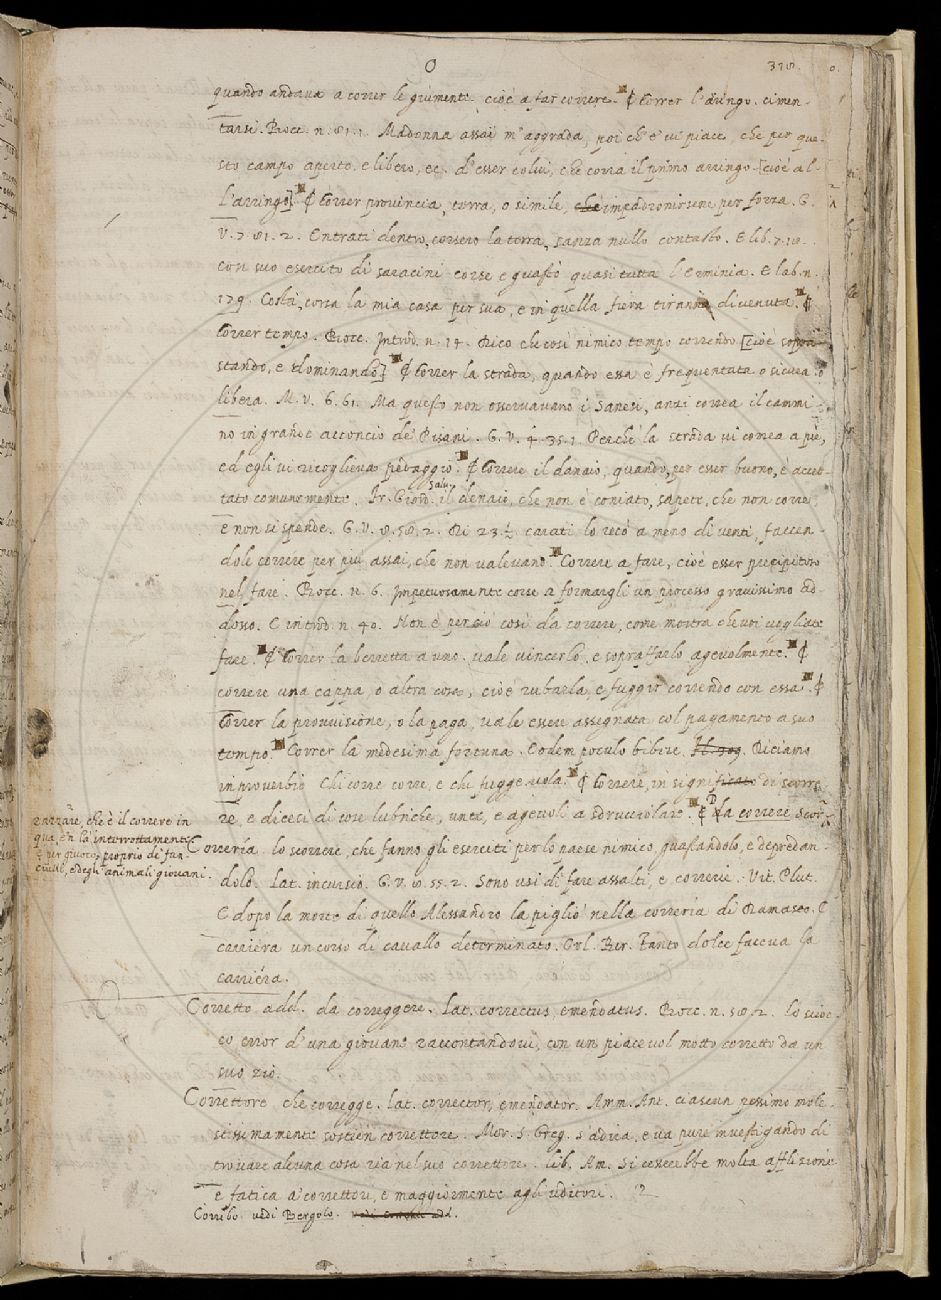 O
378.
quando andaua a correr le giumente. cioè a far correre. ₵ Correr l'aringo. cimen-
tarsi. Bocc. n. 81. 1. Madonna assai m'aggrada, poi ch'e' vi piace, che per que-
sto campo aperto, e libero, ec. d'esser colui, che corra il primo arringo [cioè al-
l'arringo] ₵ Correr prouincia, terra, o simile, impadronirsene per forza. G.
V. 7. 81. 2. Entrati dentro, corsero la terra, sanza nullo contasto. E lib. 7.
con suo esercito di saracini corse e guastò quasi tutta l'Erminia. E Lab. n.
179. Costei corsa la mia casa per sua, e in quella fiera tiranna diuenuta. ₵
Correr tempo. Bocc. Introd. n. 14. Dico che così nimico tempo correndo [cioè sopra-
stando, e dominando] ₵ Correr la strada, quando essa è frequentata o sicura o
libera. M. V. 6. 61. Ma questo non osseruauano i Sanesi, anzi correa il cammi-
no in grande acconcio de' Pisani. G. V. 4. 35. 1 Perchè la strada vi correa a piè,
ed egli vi ricoglieua pedaggio. ₵ Correre il danaio, quando, per esser buono, è accet-
tato comunemente. Fr. Giord. Salu. il denaio, che non è coniato, sapete, che non corre,
e non si spende. G. V. 8. 58. 2. Di 23 ½ carati lo recò a meno di venti, faccen-
dole correre per più assai, che non valeuano. Correre a fare, cioè esser precipitoso
nel fare. Bocc. n. 6. Impetuosamente corse a formargli un processo grauissimo ad-
dosso. E introd. n. 40. Non è perciò così da correre, come mostra che voi vogliate
fare. ₵ Correr la berretta a uno. vale vincerlo, e sopraffarlo ageuolmente. ₵
correre una cappa, o altra cosa, cioè rubarla, e fuggir correndo con essa. ₵
Correr la prouuisione, o la paga, vale essere assegnata col pagamento a suo
tempo. Correr la medesima fortuna. Eodem poculo bibere. Diciamo
in prouerbio Chi corre corre, e chi fugge vola. ₵ Correre, in significato di scorre-
re, e dicesi di cose lubriche, unte, e ageuoli a sdrucciolare. ₵ Da correre
razzare, che è il correre in
qua, e 'n là interrottamente
per giuoco, proprio de' fan-
ciulli, e degli animali giouani.
Correria lo scorrere, che fanno gli eserciti per lo paese nimico, guastandolo, e depredan-
dolo. Lat. incursio. G. V. 8. 55. 2. Sono usi di fare assalti, e correrie. Vit. Plut.
E dopo la morte di quello Alessandro la pigliò nella correria di Damasco. E
carriera un corso di cauallo determinato. Orl. Ber. Tanto dolce faceua la
carriera.
Corretto add. da correggere. Lat. correctus, emendatus. Bocc. n. 58. 2. Lo scioc-
co error d'una giouane raccontandoui, con un piaceuol motto, corretto da un
suo zio.
Correttore che corregge. Lat. corrector, emendator. Amm. Ant. ciascun pessimo mole-
stissimamente sostien correttore. Mor. S. Greg. s'adira, e va pure inuestigando di
trouare alcuna cosa ria nel suo correttore. lib. Am. Si crescerebbe molta afflizione
e fatica a' correttori, e maggiormente agli uditori.
Corribo. vedi Bergolo.